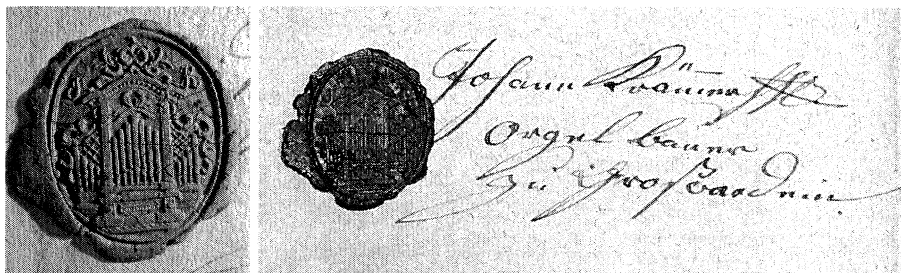 Johann Krämer
Orgel bauer
zu Großwardein.